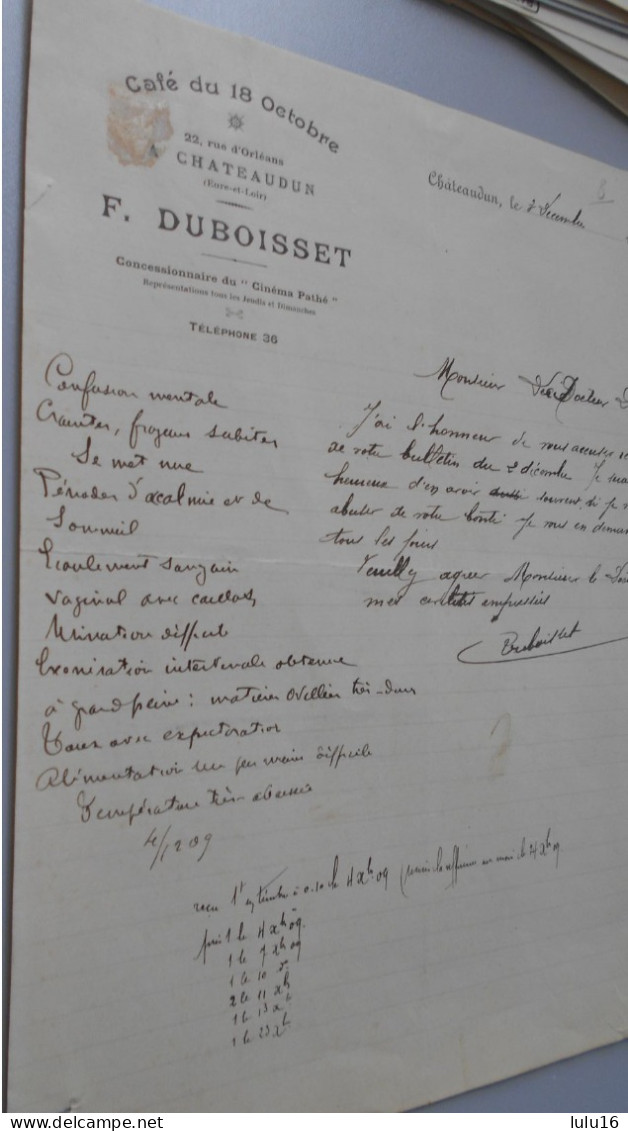 Café du 18 Octobre
22, rue d'Orléans
CHATEAUDUN
(Eure-et-Loir)
F. DUBOISSET
Concessionnaire du "Cinéma Pathé"
Représentations tous les Jeudis et Dimanches
TÉLÉPHONE 36
Châteaudun, le 3 Décembre
3
Monsieur Docteur D
J'ai l'honneur de vous accuser
de votre bulletin du 2 décembre Je
heureux d'en avoir souvent si je
abuser de votre bonté je
tous les jours
Veuillez agréer Monsieur le
mes civilités empressées
Duboisset
Confusion mentale
Craintes, frayeurs subites
Se met nue
Périodes d'acalmie et de
Sommeil
Ecoulement sanguin
vaginal avec caillots
Urination difficile
Exoneration intestinale obtenue
à grand peine : matières ovillées très-dures
Toux avec expectoration
Alimentation un peu moins difficile
Température très-abaissée
4/12 09
reçu 1 le 4 Xbre 09
1 le 4 Xbre 09
1 le 7 Xbre 09
1 le 10 do
2 le 11 Xb
1 le 13 Xb
1 le 23 Xb
lulu16